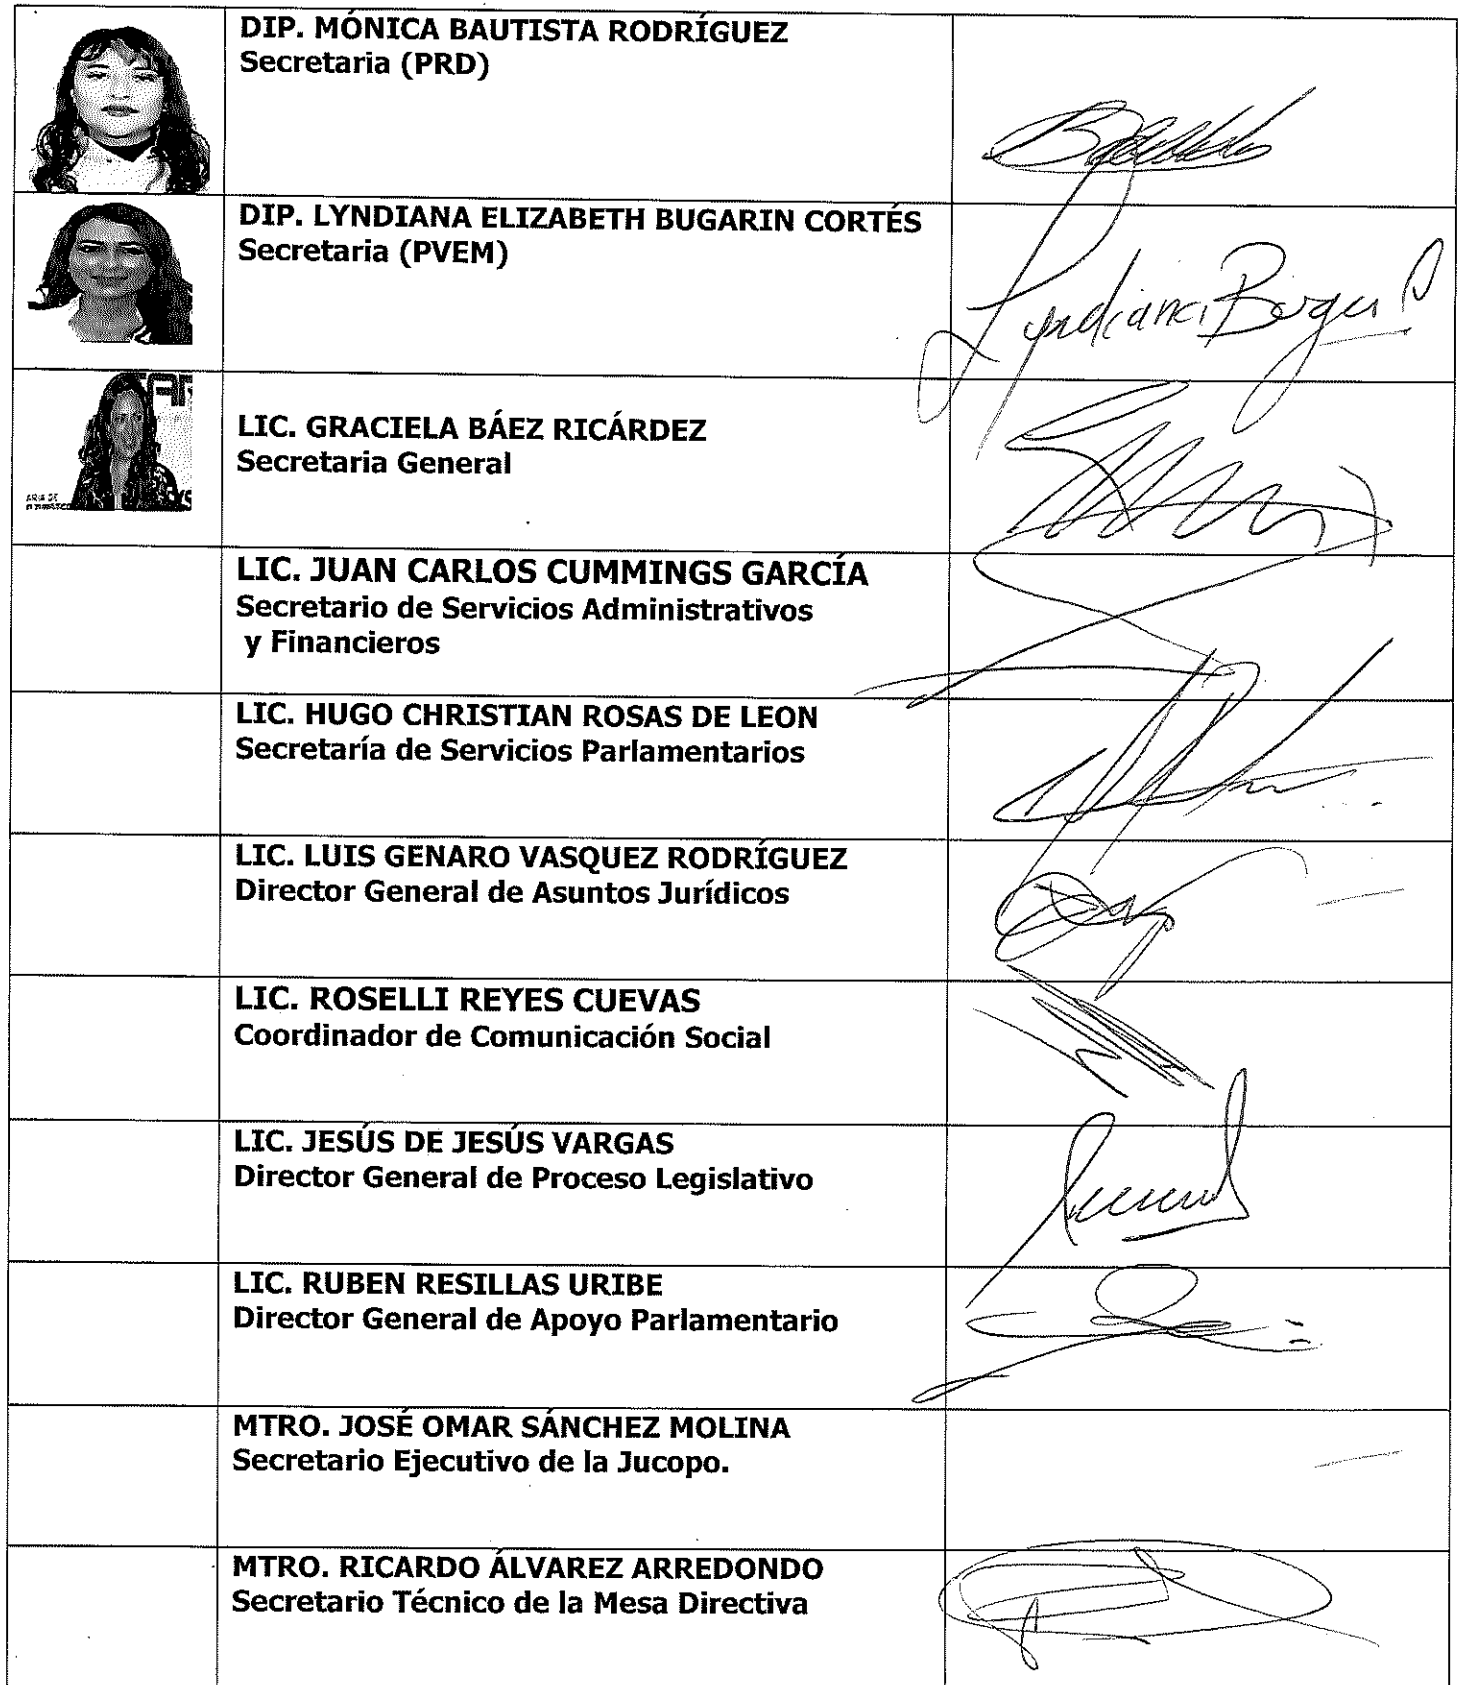 DIP. MÓNICA BAUTISTA RODRÍGUEZ
Secretaria (PRD)
DIP. LYNDIANA ELIZABETH BUGARIN CORTÉS
Secretaria (PVEM)
Lyndiana Bugar
LIC. GRACIELA BÁEZ RICÁRDEZ
Secretaria General
LIC. JUAN CARLOS CUMMINGS GARCÍA
Secretario de Servicios Administrativos
y Financieros
LIC. HUGO CHRISTIAN ROSAS DE LEON
Secretaría de Servicios Parlamentarios
LIC. LUIS GENARO VASQUEZ RODRÍGUEZ
Director General de Asuntos Jurídicos
LIC. ROSELLI REYES CUEVAS
Coordinador de Comunicación Social
LIC. JESÚS DE JESÚS VARGAS
Director General de Proceso Legislativo
LIC. RUBEN RESILLAS URIBE
Director General de Apoyo Parlamentario
MTRO. JOSÉ OMAR SÁNCHEZ MOLINA
Secretario Ejecutivo de la Jucopo.
MTRO. RICARDO ÁLVAREZ ARREDONDO
Secretario Técnico de la Mesa Directiva